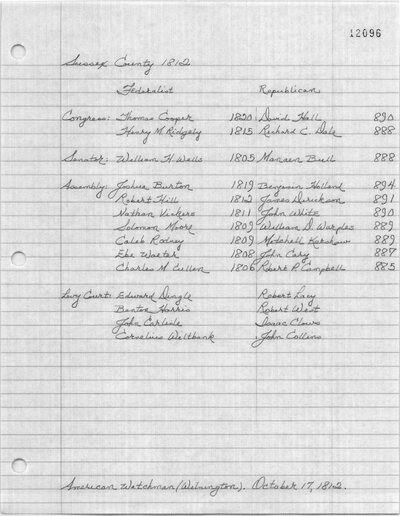 12096
Sussex County 1812
Federalist Republican
Congress: Thomas Cooper 1820 David Hall 890
Henry M. Ridgely 1815 Richard C. Dale 888
Senator: William H. Wells 1805 Manaen Bull 888
Assembly: Joshua Burton 1819 Benjamin Holland 894
Robert Hill 1812 James Derickson 891
Nathan Vickers 1811 John White 890
Solomon Moore 1809 William D. Waples 889
Caleb Rodney 1809 Mitchell Kershaw 889
Ebe Walter 1808 John Cary 887
Charles M. Cullen 1806 Robert P. Campbell 885
Levy Court: Edward Dingle Robert Lacy
Benton Harris Robert West
John Carlisle Isaac Clows
Cornelius Waltbank John Collins
American Watchman (Wilmington). October 17, 1812.